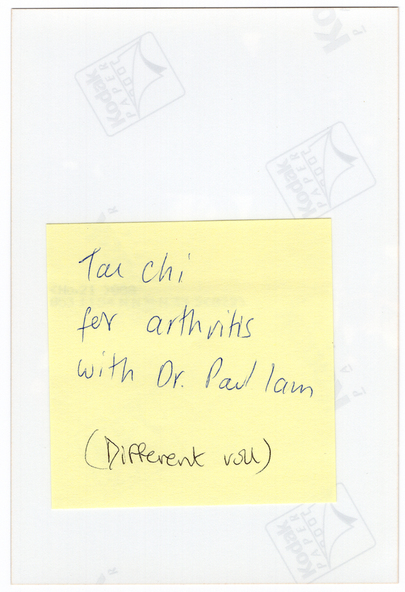 Kodak
PAPER
Kodak
PAPER
Tai chi
for arthritis
with Dr. Paul Lam
(Different roll)
Kodak
PAPER